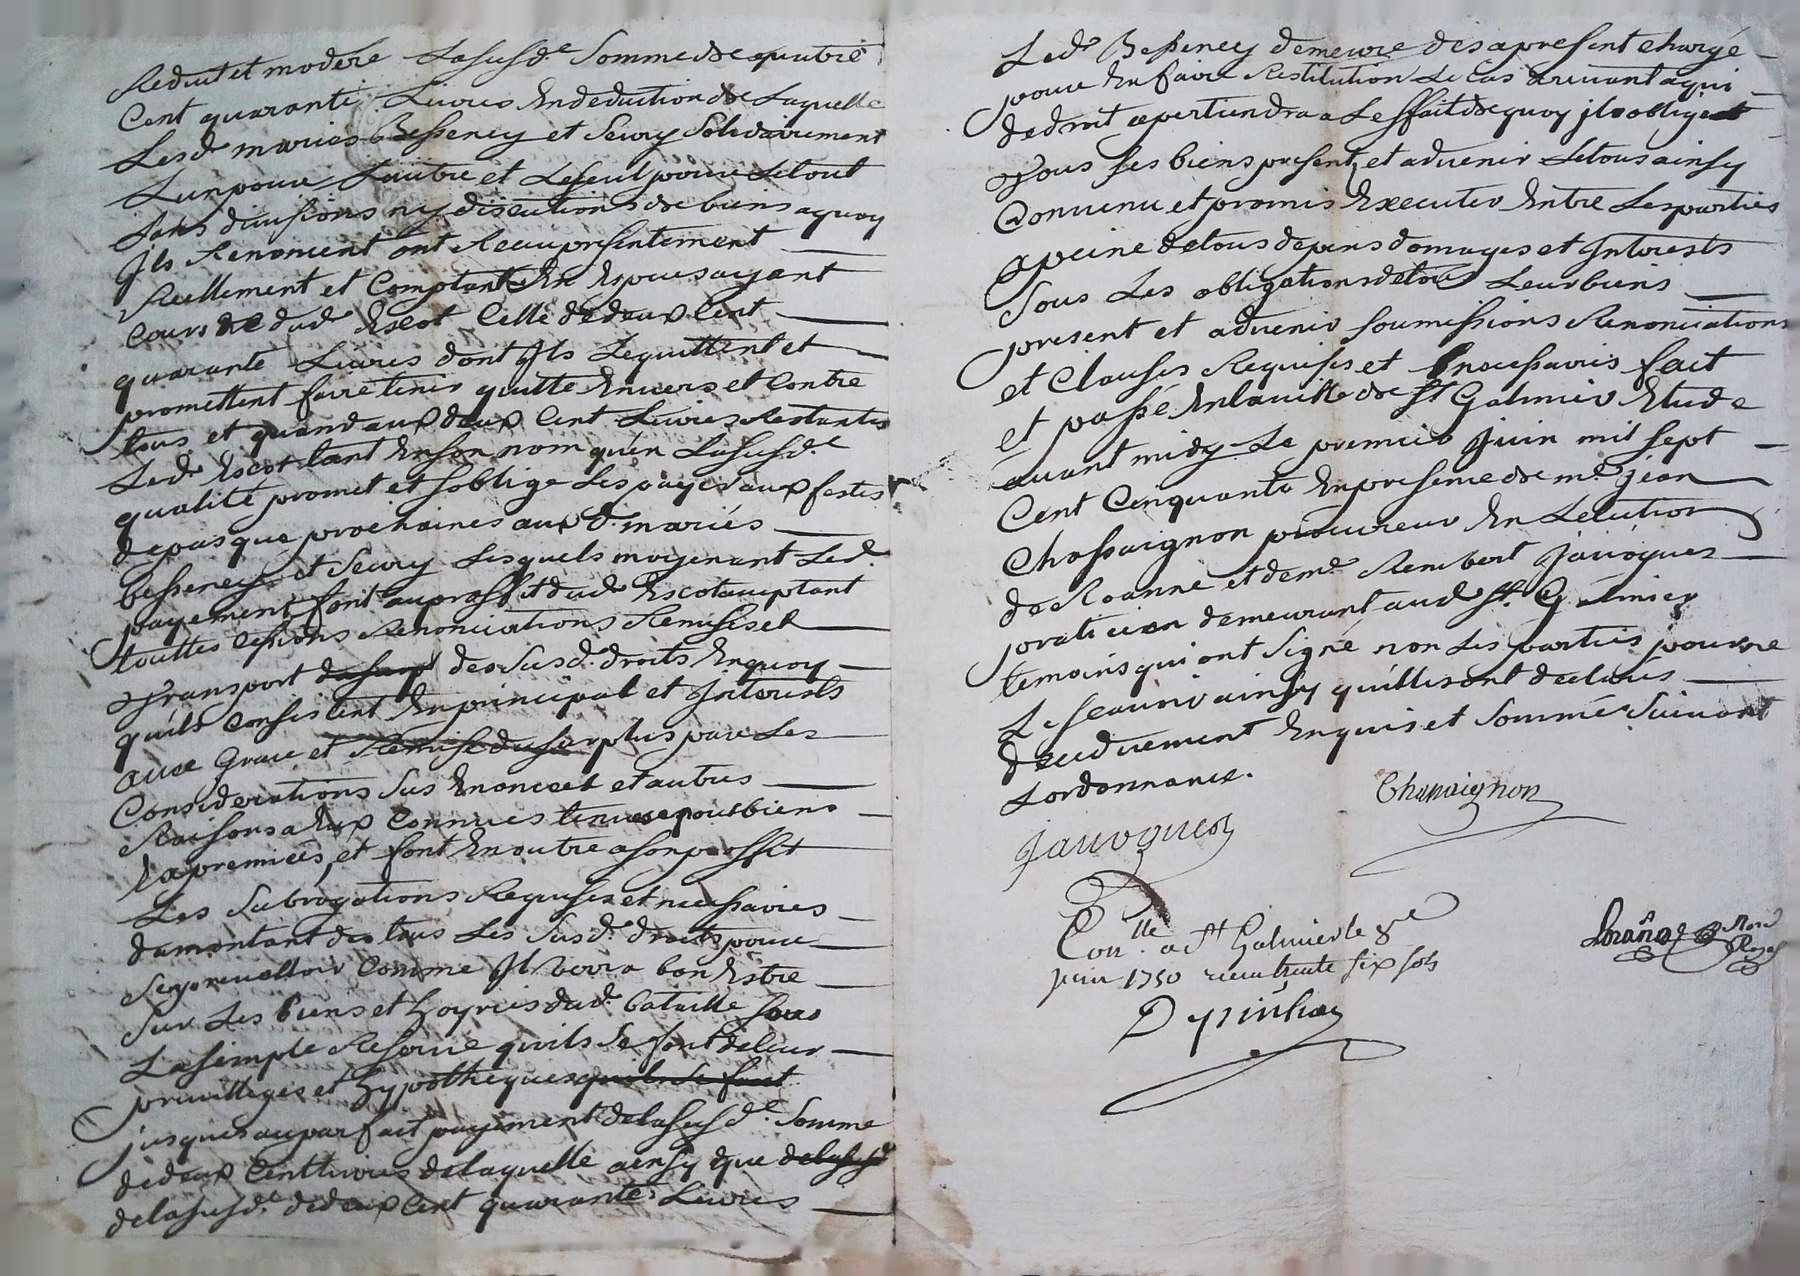 Reduit et modéré La susd.e Somme de quatre
Cent quarante Livres En deduction de Laquelle
Lesd. mariés Besseney et Seury Solidairement
Lun pour Lautre et Le seul pour Le tout
sans divisions ny discutions de biens a quoy
Ils Renoncent ont Receu presentement
Reellement et Comptant En Especes ayant
Cours dud. Escot Celle de deux Cent
quarante Livres dont Ils Lequittent et
promettent faire tenir quitte Envers et Contre
tous et quand aux deux Cent Livres Restantes
Led. Escot tant En son nom qu'en La susd.e
qualité promet et soblige Les payer aux festes
depasque prochaines aux d. mariés
Besseney et Seury Lesquels moyenant Led.
payement font au proffit dud. Escot acceptant
touttes Cessions Renonciations Remises et
Transport des susd. droits En quoy
quils Consistent En principal et Interests
avec Grace et Remise du surplus pour Les
Considerations sus Enoncées et autres
Raisons a Eux Connues
et font En outre a son proffit
Les Subrogations Requises et necessaires
du montant de tous Les susd. droits pour
Comme Il verra bon Estre
sur Les biens et hoyries dud. bataille sous
La simple Reserve quils se font de leur
privilleges et hypotheques quils se font
jusques au parfait payement de la susd.e Somme
de deux Cent Livres de laquelle ainsy que de la susd.
de la susd.e de deux Cent quarante Livres
Led. Besseney demeure des apresent chargé
pour En faire Restitution Le Cas arrivant a qui
de droit apertiendra a Leffait de quoy il oblige
Tous ses biens present et advenir Le tous ainsy
Convenu et promis Executer Entre Les parties
a peine de tous depens domages et Interests
sous Les obligations de tous Leur biens
present et advenir soumissions Renonciations
et Clauses Requises et necessaires fait
et passé En la ville de St Galmier Etude
avant midy Le premier Juin mil sept
Cent Cinquante En presence de m.e Jean
Chassaignon procureur En Lelection
de Roanne et de m.e Rembert Javogues
praticien demeurant aud. St. Galmier
temoins qui ont signé non Les parties pour ne
Le scavoir ainsy quil Lesont declarés
de ce duement Enquis et sommés suivant
Lordonnance.
Chassaignon
Javogues
Con.lle a St Galmier le 8e
juin 1750 receu trente six sols